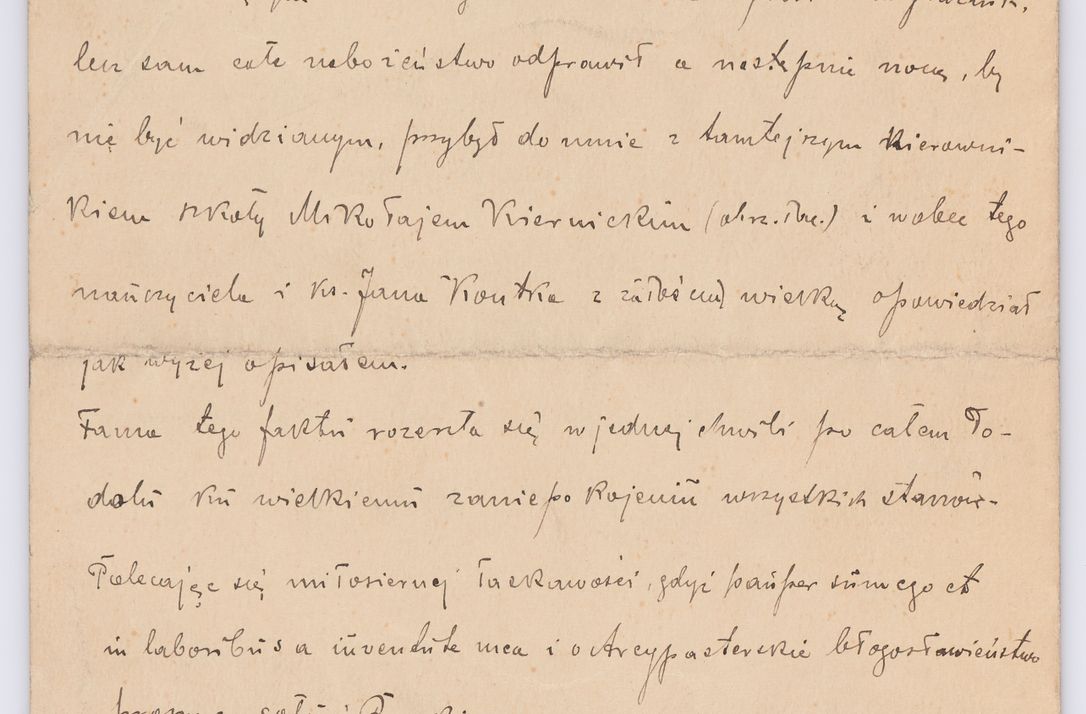 lecz sam całe nabożeństwo odprawił a następnie nocą, by
nie być widzianym, przybył do mnie z tamtejszym kierowni-
kiem szkoły Mikołajem Kiernickim (obrz. łac.) i wobec tego
nauczyciela i ks. Jana Kontka z żałością wielką opowiedział
jak wyżej opisałem.
Fama tego faktu rozeszła się w jednej chwili po całem Po-
dolu ku wielkiemu zaniepokojeniu wszystkich stanów.
Polecając się miłosiernej łaskawości, gdyż pauper sum ego et
in laboribus a iuventute mea i o Arcypasterskie błogosławieństwo